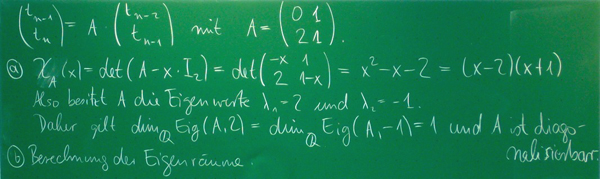 (t_{n-1} t_n) = A · (t_{n-2} t_{n-1}) mit A = (0 1 2 1).
(a) χ_A(x) = det(A - x·I_2) = det(-x 1 2 1-x) = x² - x - 2 = (x-2)(x+1)
Also besitzt A die Eigenwerte λ_1 = 2 und λ_2 = -1.
Daher gilt dim_ℚ Eig(A,2) = dim_ℚ Eig(A,-1) = 1 und A ist diago-
nalisierbar.
(b) Berechnung der Eigenräume.